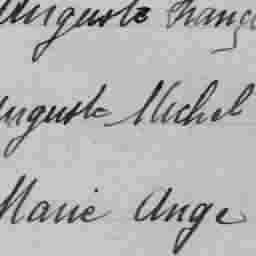 Auguste Franç
Auguste Michel
Marie Ange